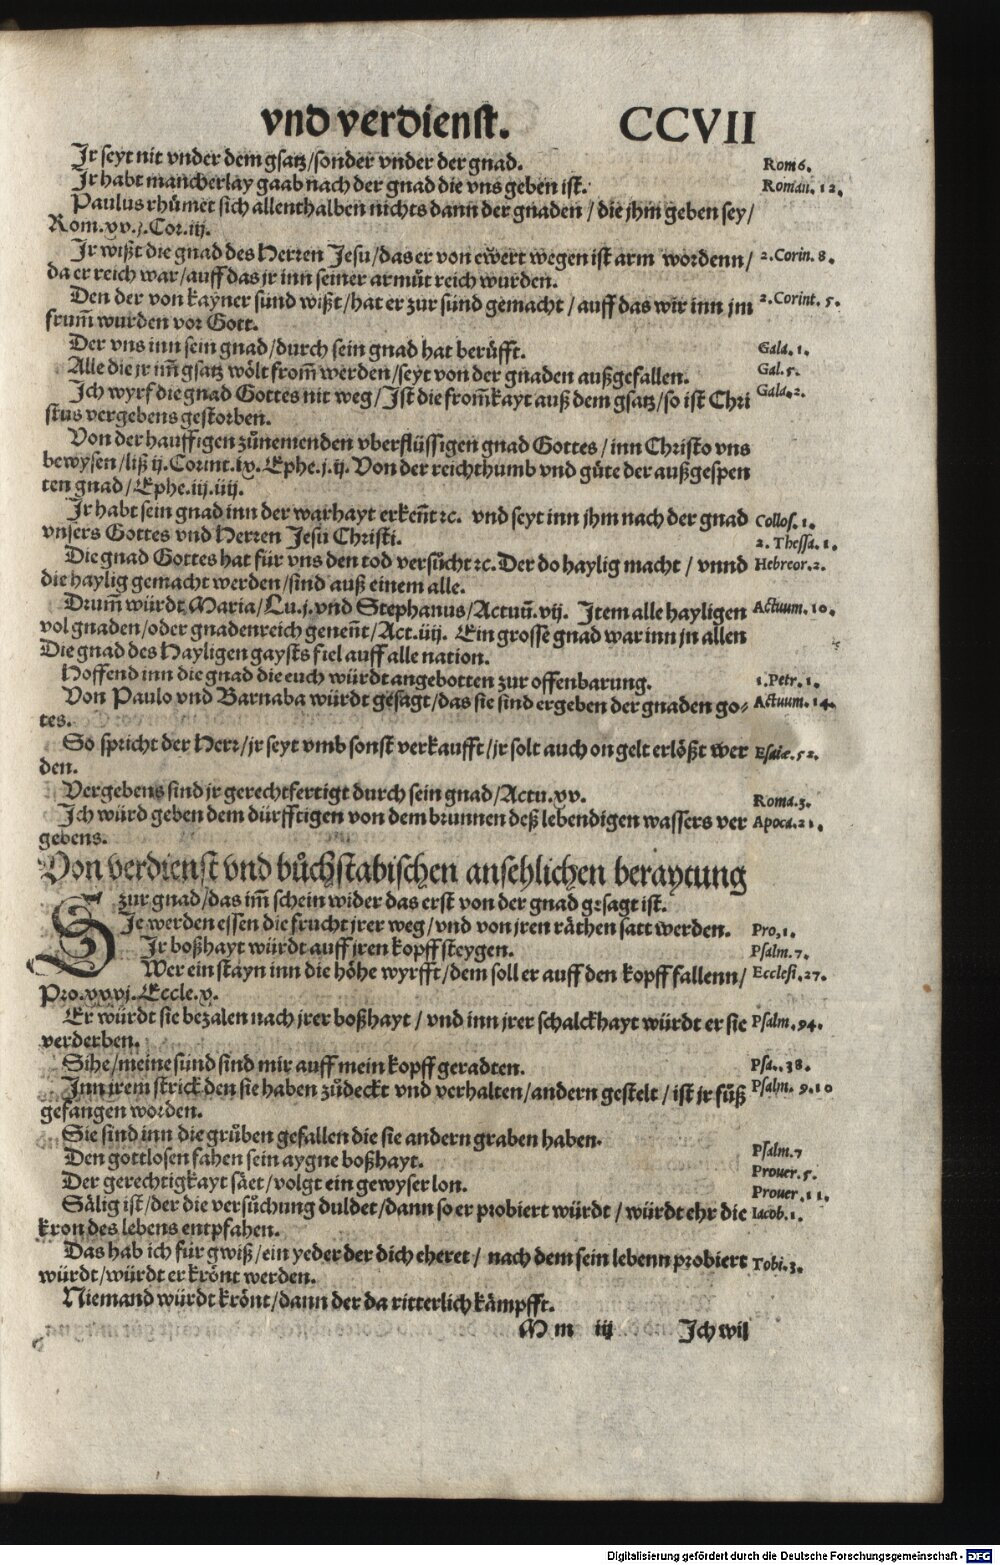 vnd verdienst. CCVII
Jr seyt nit vnder dem gsatz/sonder vnder der gnad. Rom 6.
Jr habt mancherlay gaab nach der gnad die vns geben ist. Roman. 12.
Paulus rhůmet sich allenthalben nichts dann der gnaden / die jhm geben sey/
Rom.xv.j.Cor.iij.
Jr wißt die gnad des Herren Jesu/das er von ewert wegen ist arm wordenn/ 2.Corin. 8.
da er reich war/auff das jr inn seiner armůt reich wurden.
Den der von kayner sünd wißt/hat er zur sünd gemacht / auff das wir inn jm 2.Corint. 5.
frum̃ wurden vor Gott.
Der vns inn sein gnad/durch sein gnad hat berůfft. Gala. 1.
Alle die jr im̃ gsatz wölt from̃ werden/seyt von der gnaden außgefallen. Gal. 5.
Jch wyrf die gnad Gottes nit weg/Jst die from̃kayt auß dem gsatz/so ist Chri Gala. 2.
stus vergebens gestorben.
Von der hauffigen zůnemenden vberflüssigen gnad Gottes / inn Christo vns
bewysen/liß ij. Corint.ix. Ephe.j.ij. Von der reichthumb vnd gůte der außgespen
ten gnad/Ephe.iij.iiij.
Jr habt sein gnad inn der warhayt erken̄t ꝛc. vnd seyt inn jhm nach der gnad Collos. 1.
vnsers Gottes vnd Herren Jesu Christi. 2. Thessa. 1.
Die gnad Gottes hat für vns den tod versůcht ꝛc. Der do haylig macht / vnnd Hebreor. 2.
die haylig gemacht werden/sind auß einem alle.
Drum̃ würdt Maria/Lu.j. vnd Stephanus/Actuū.vij. Jtem alle hayligen Actuum. 10.
vol gnaden/oder gnadenreich genen̄t/Act.iiij. Ein grosse gnad war inn jn allen
Die gnad des Hayligen gaysts fiel auff alle nation.
Hoffend inn die gnad die euch würdt angebotten zur offenbarung. 1.Petr. 1.
Von Paulo vnd Barnaba würdt gesagt/das sie sind ergeben der gnaden go- Actuum. 14.
tes.
So spricht der Herr/jr seyt vmb sonst verkaufft/jr solt auch on gelt erlößt wer Esaiæ. 52.
den.
Vergebens sind jr gerechtfertigt durch sein gnad/Actu.xv. Roma. 3.
Jch würd geben dem dürfftigen von dem brunnen deß lebendigen wassers ver Apoca. 21.
gebens.
Von verdienst vnd bůchstabischen ansehlichen beraytung
zur gnad/das im̃ schein wider das erst von der gnad gesagt ist.
Sie werden essen die frucht jrer weg/vnd von jren räthen satt werden. Pro. 1.
Jr boßhayt würdt auff jren kopff steygen. Psalm. 7.
Wer ein stayn inn die höhe wyrfft/dem soll er auff den kopff fallenn/ Ecclesi. 27.
Pro.xxvj. Eccle.x.
Er würdt sie bezalen nach jrer boßhayt / vnd inn jrer schalckhayt würdt er sie Psalm. 94.
verderben.
Sihe/meine sünd sind mir auff mein kopff geradten. Psa. 38.
Jnn irem strick den sie haben zůdeckt vnd verhalten/andern gestelt / ist jr fůß Psalm. 9.10
gefangen worden.
Sie sind inn die grůben gefallen die sie andern graben haben. Psalm. 7
Den gottlosen fahen sein aygne boßhayt. Prouer. 5.
Der gerechtigkayt säet/volgt ein gewyser lon. Prouer. 11.
Sälig ist/der die versůchung duldet/dann so er probiert würdt / würdt ehr die Iacob. 1.
kron des lebens entpfahen.
Das hab ich für gwiß/ein yeder der dich eheret / nach dem sein lebenn probiert Tobi. 3.
würdt/würdt er krönt werden.
Niemand würdt krönt/dann der da ritterlich kämpfft.
M m iij Jch wil
Digitalisierung gefördert durch die Deutsche Forschungsgemeinschaft - DFG